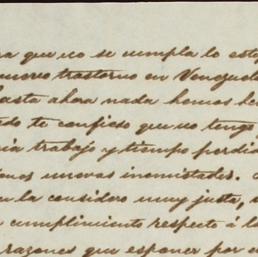 ra que no se cumpla lo esti
nuevo trastorno en Venezuel
hasta ahora nada hemos he
do te confieso que no tengo
ia trabajo y tiempo perdid
nos unovas incomitades.
la considero muy justa,
cumplimiento respecto á l
razones que esponer por